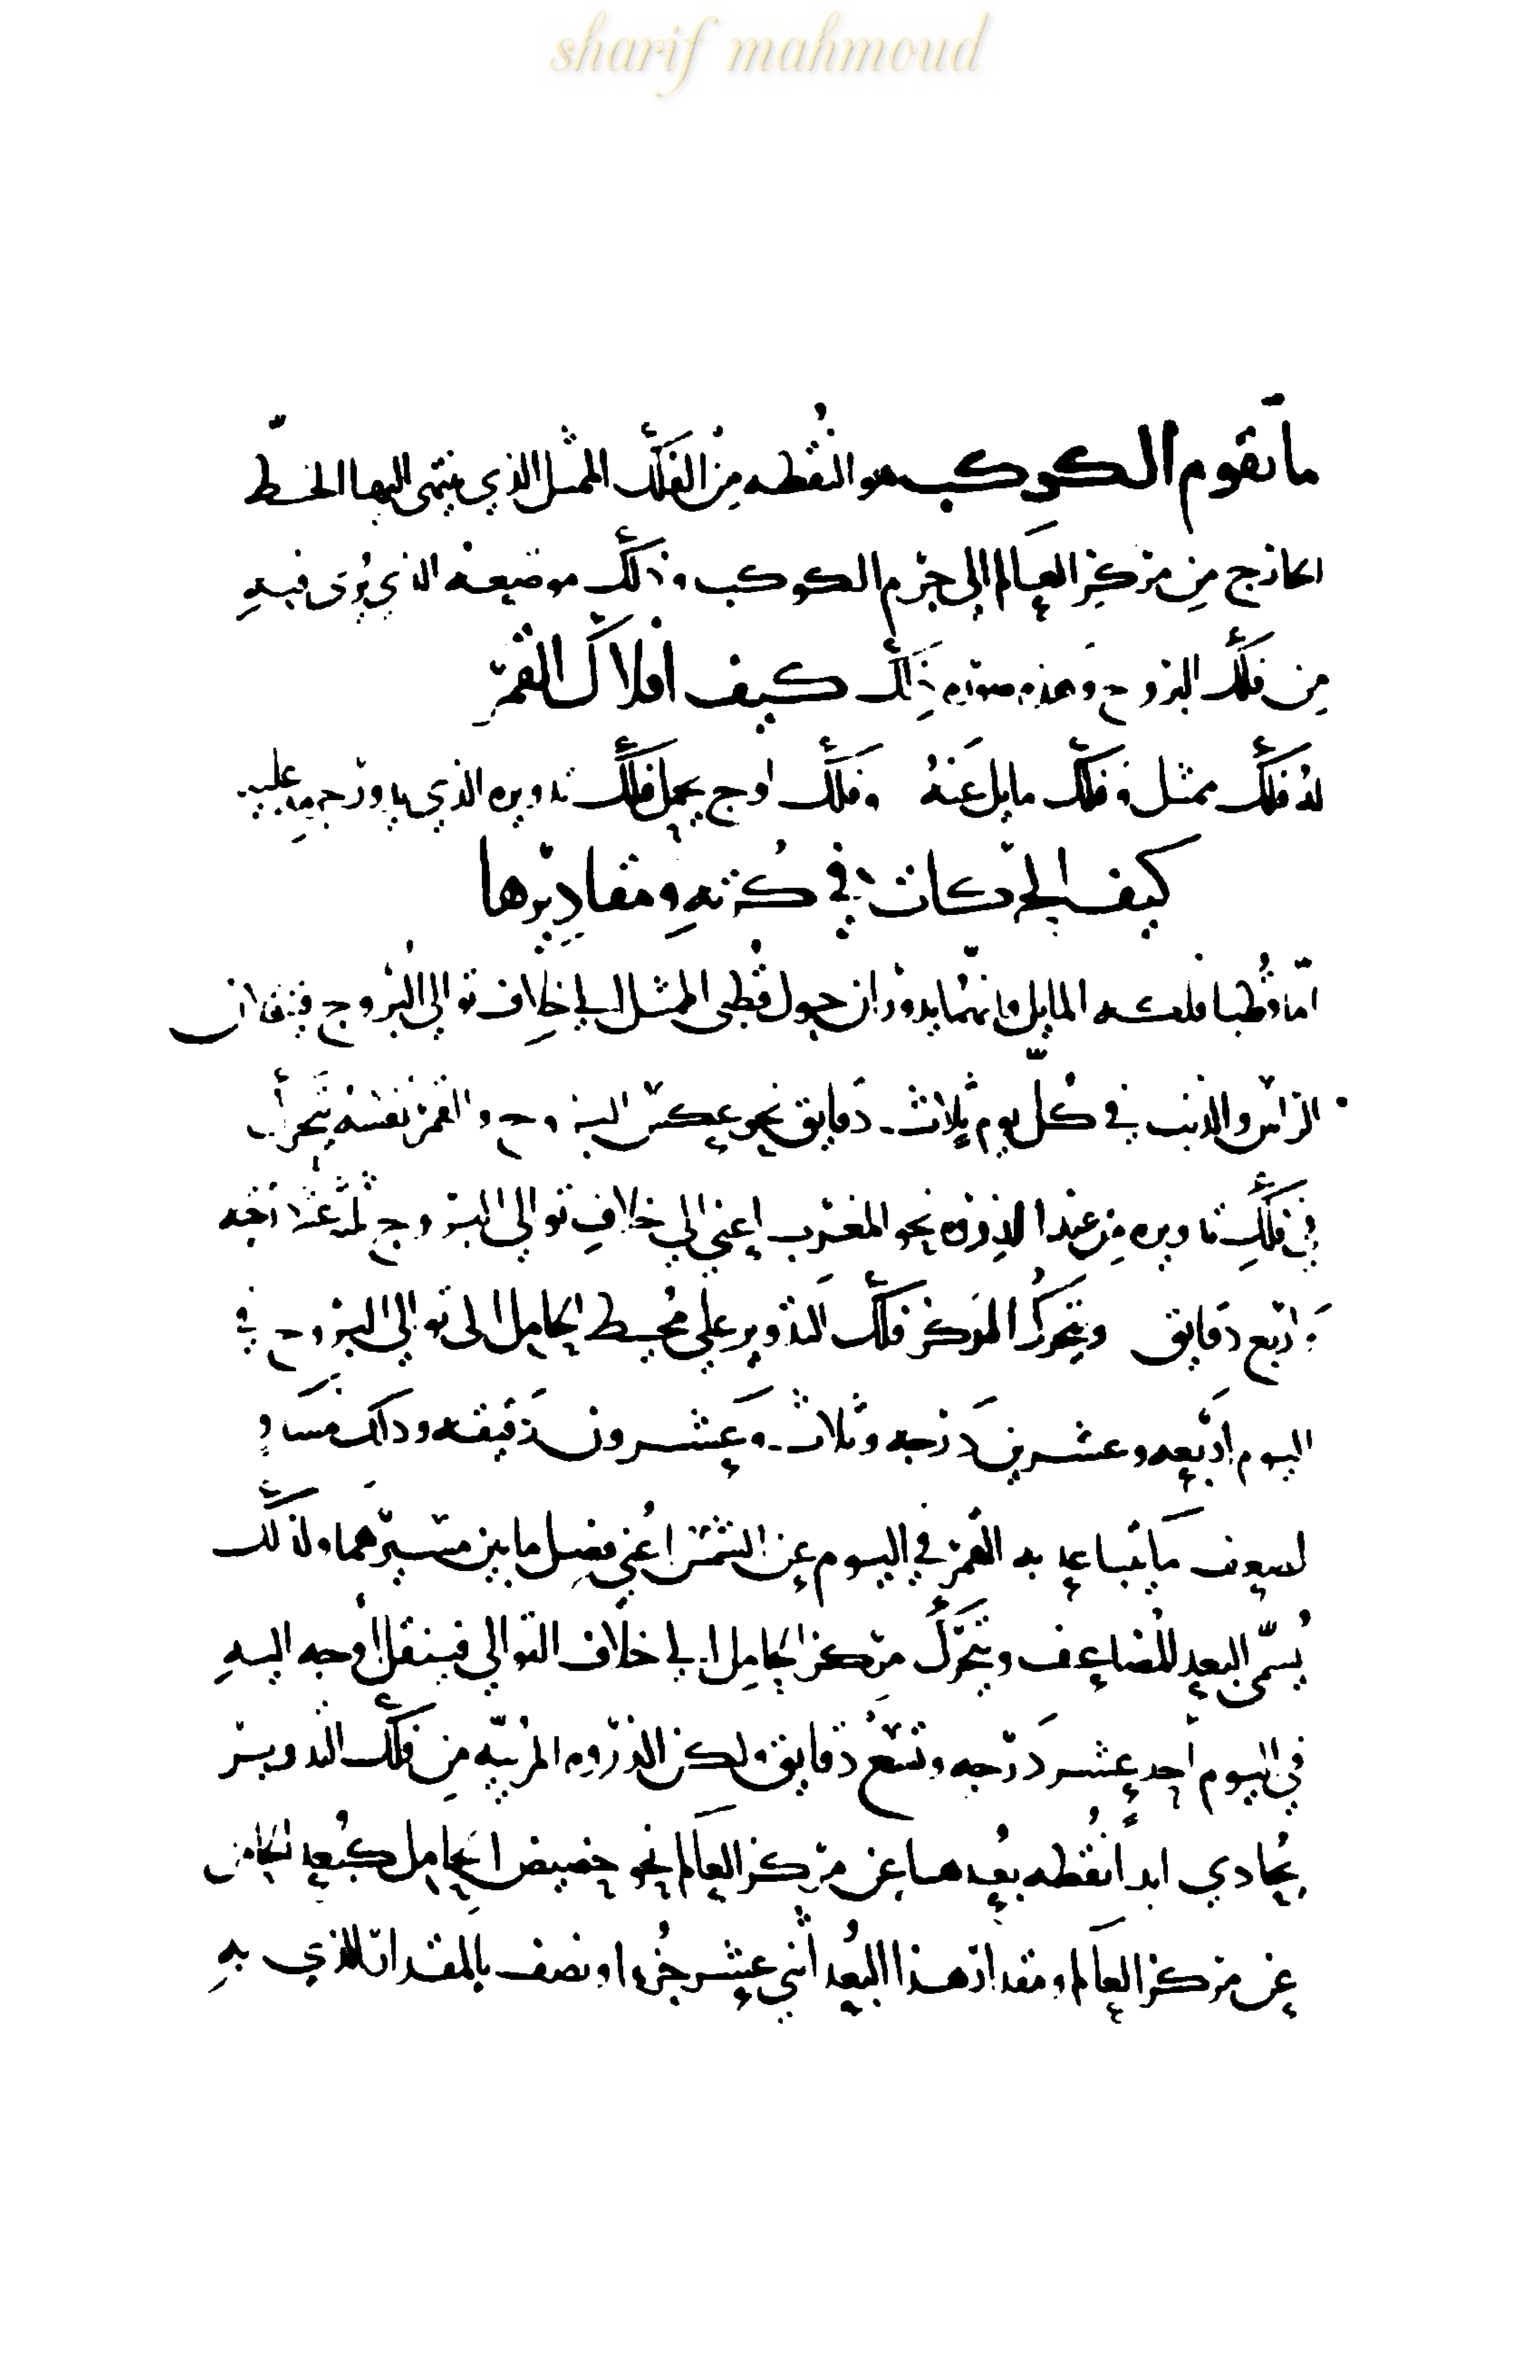 sharif mahmoud
ما تقوم الكوكب هو النقطه من الفلك الممثل الذي ينتهى اليها الخط
الخارج من مركز العالم الى جرم الكوكب وذلك موضعه الذي يُرى فيه
من فلك البروج وهذه صورة ذلك كيف افلاك القمر
له فلك ممثل وفلك مايل عنه وفلك اوج يحمل فلك تدويره الذي يدور جرمه عليه
كيف الحركات في كرته ومقاديرها
امّا قطبا فلكه المايل فانهما يدوران حول قطبى الممثل الي خلاف توالي البروج فينقلان
الراس والذنب في كل يوم ثلاث دقايق نحو عكس البروج والقمر نفسه يتحرك
في فلك تدويره من عند الذروه نحو المغرب اعني الي خلاف توالي البروج ثلثة عشر درجه
واربع دقايق ويتحرك المركز فلك التدوير علي محيط الحامل الى توالي البروج في
اليوم اربعه وعشرين درجه وثلاث وعشرون دقيقه وذلك مساوٍ
لضعف ما يتباعد به القمر في اليوم عن الشمس اعني فضل ما بين مسيرهما ولذلك
يُسمّى البعد المضاعف ويتحرك مركز الحامل الي خلاف التوالي فينقل اوجه اليه
في اليوم احد عشر درجه وتسع دقايق ولكن الذروه المرئيّه من فلك التدوير
يُحاذي ابداً نقطه بعدها عن مركز العالم نحو حضيض الحامل كبُعد الحامل
عن مركز العالم ومقدار هذا البُعد اثني عشر جُزءا ونصف بالمقدار الذي به